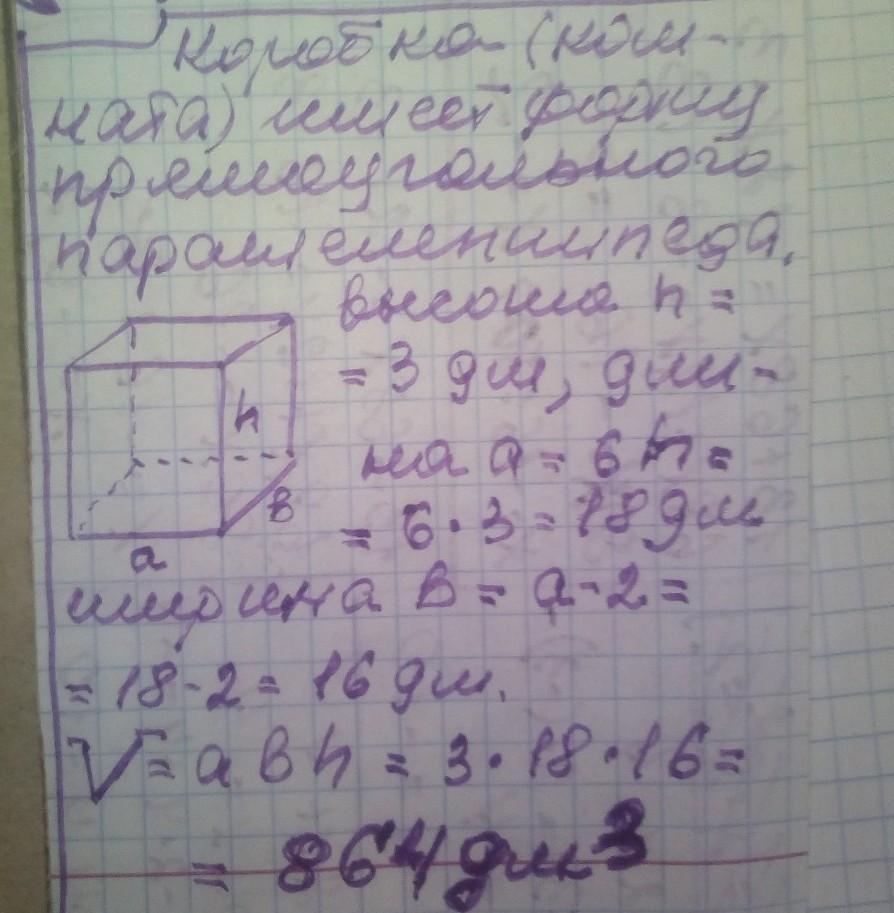 Коробка (ком-
ната) имеет форму
прямоугольного
параллелепипеда.
высота h =
= 3 дм, дли-
на a = 6h =
= 6·3 = 18 дм
h
в
a
ширина в = a-2 =
= 18-2 = 16 дм.
V = a в h = 3·18·16 =
= 864 дм³